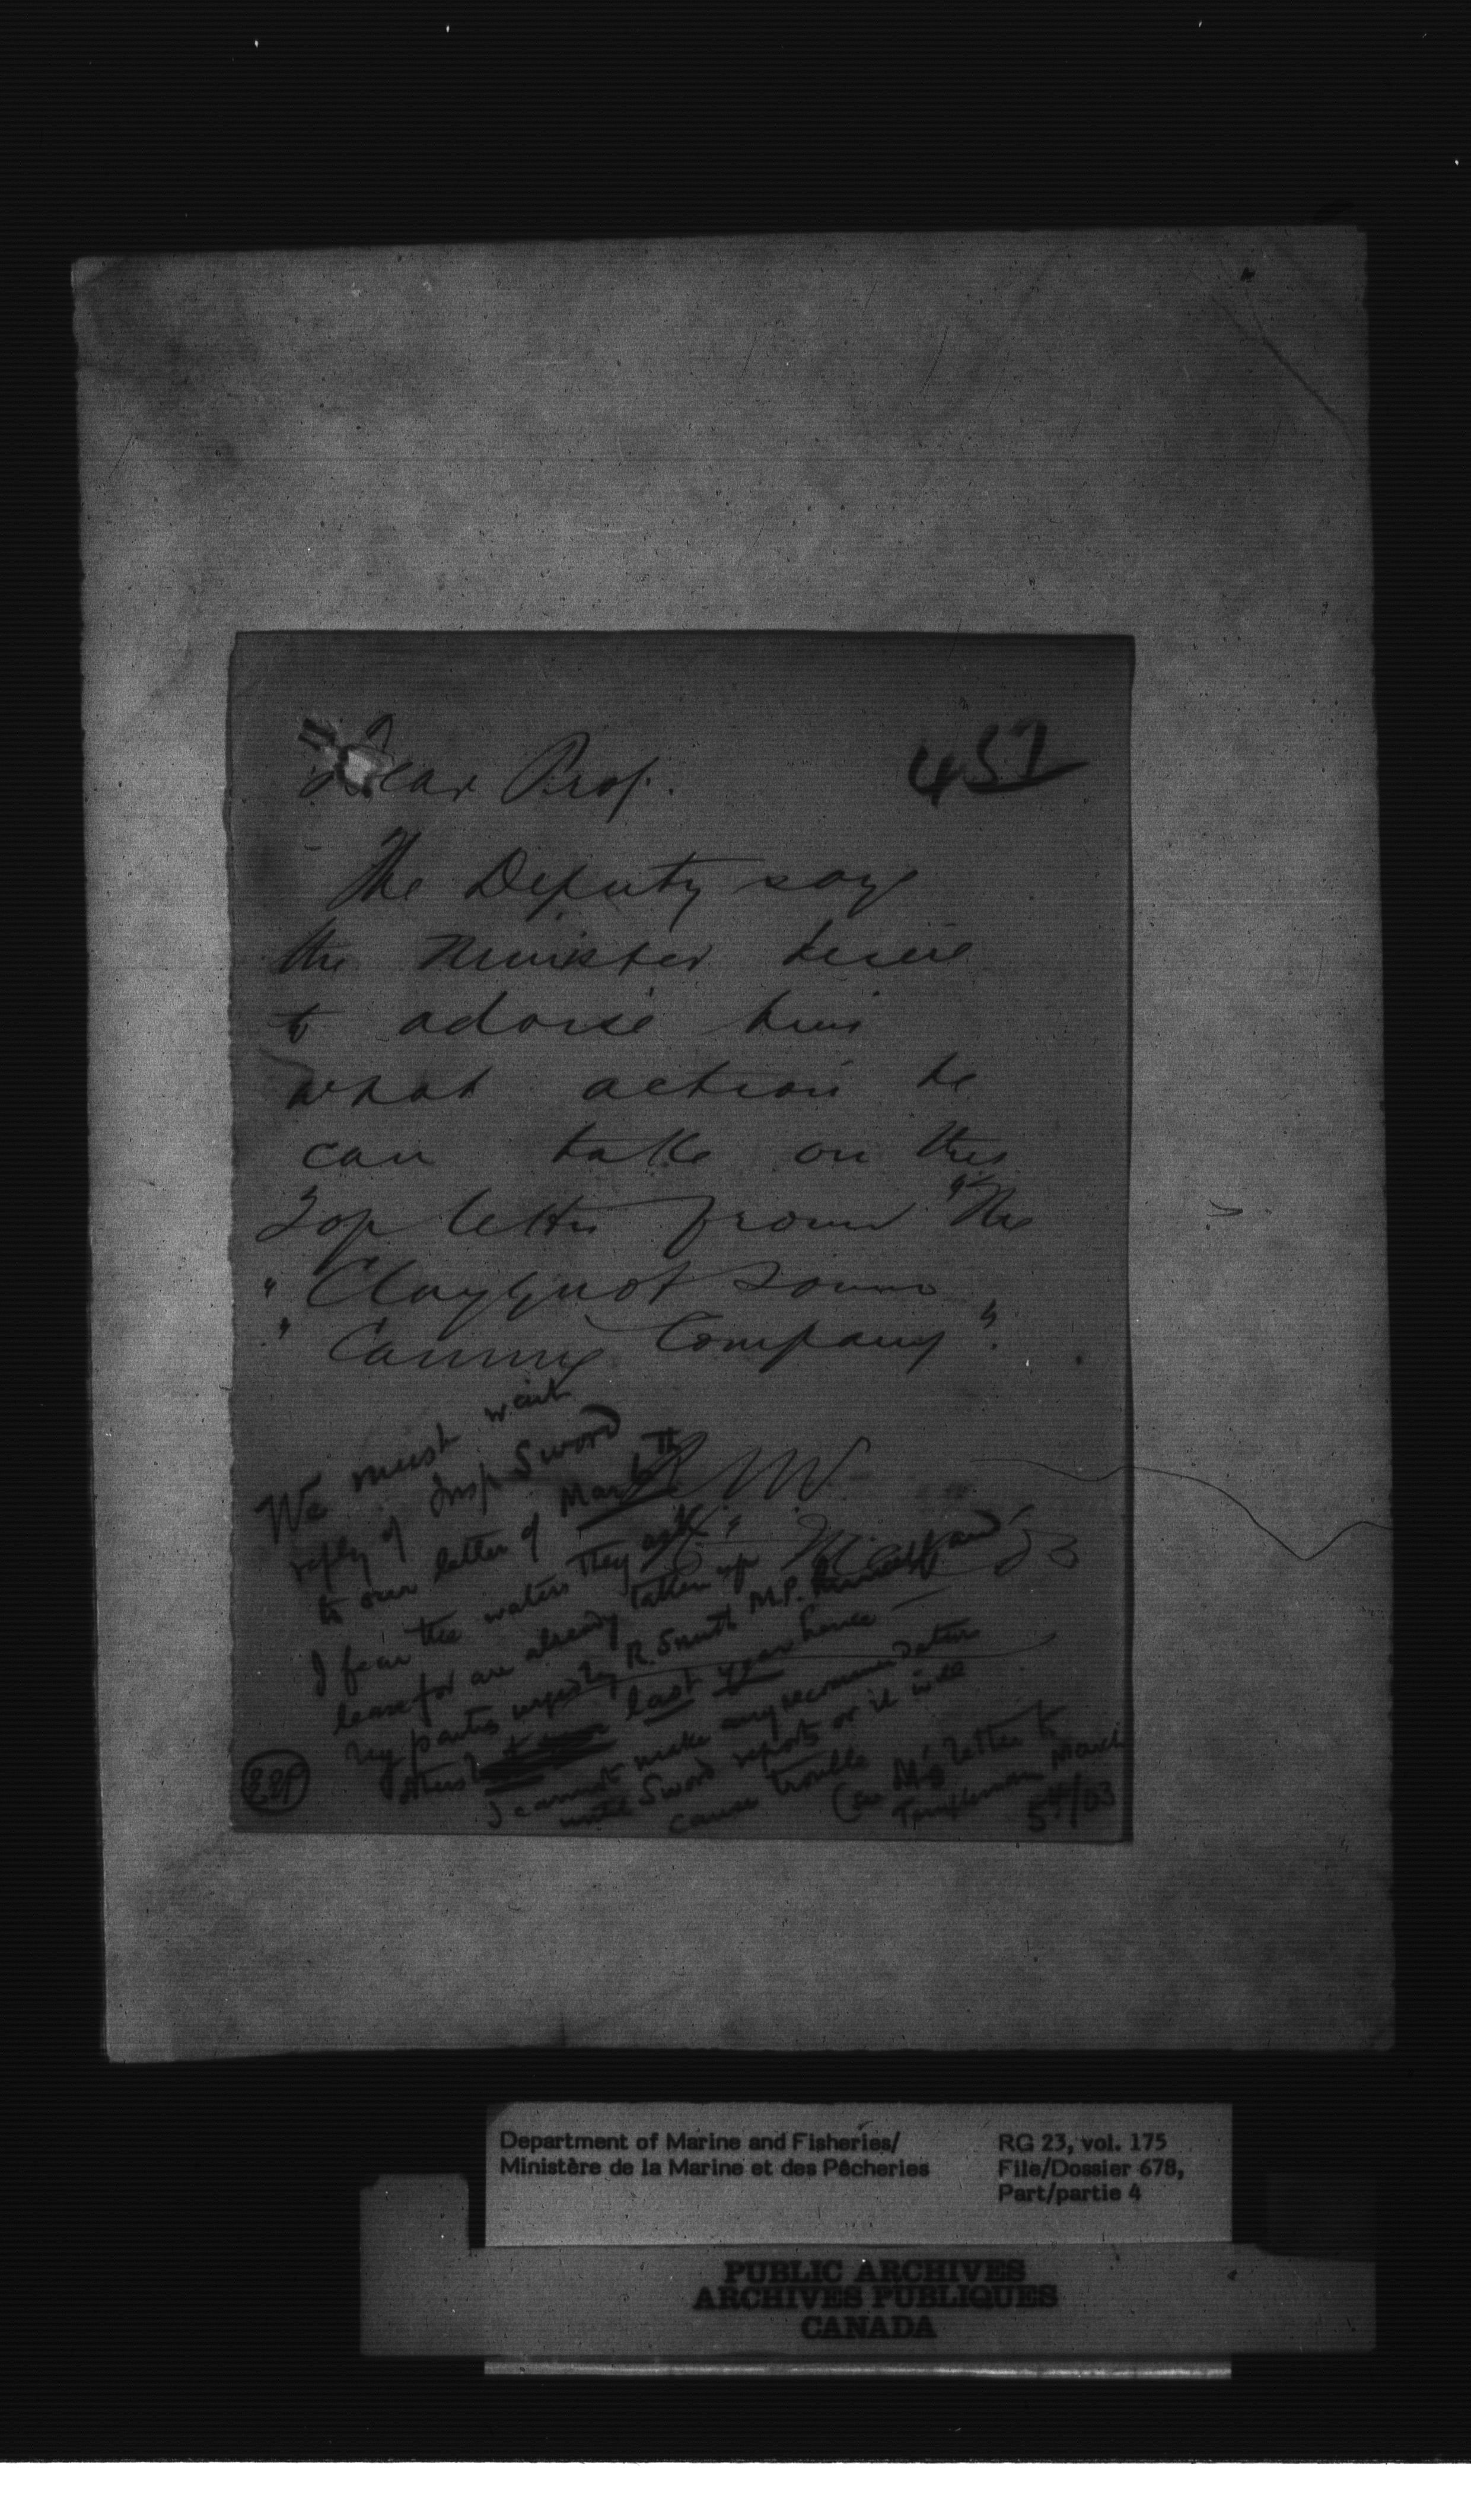 Dear Prof.
457
The Deputy says
the Minister desires
to advise him
what action he
can take on this
Top letter from "The
" Clayquot Sound
" Canning Company".
R W
We must wait
reply of Insp Sword
to our letter of Mar 6th
I fear the waters they ask
lease for are already taken up
by parties urged by R. Smith M.P. himself and
others last year hence
I cannot make any recommendation
until Sword reports or it will
cause trouble
(see M's letter to
Templeman March
5th/03
EEP
Department of Marine and Fisheries/
Ministère de la Marine et des Pêcheries
RG 23, vol. 175
File/Dossier 678,
Part/partie 4
PUBLIC ARCHIVES
ARCHIVES PUBLIQUES
CANADA